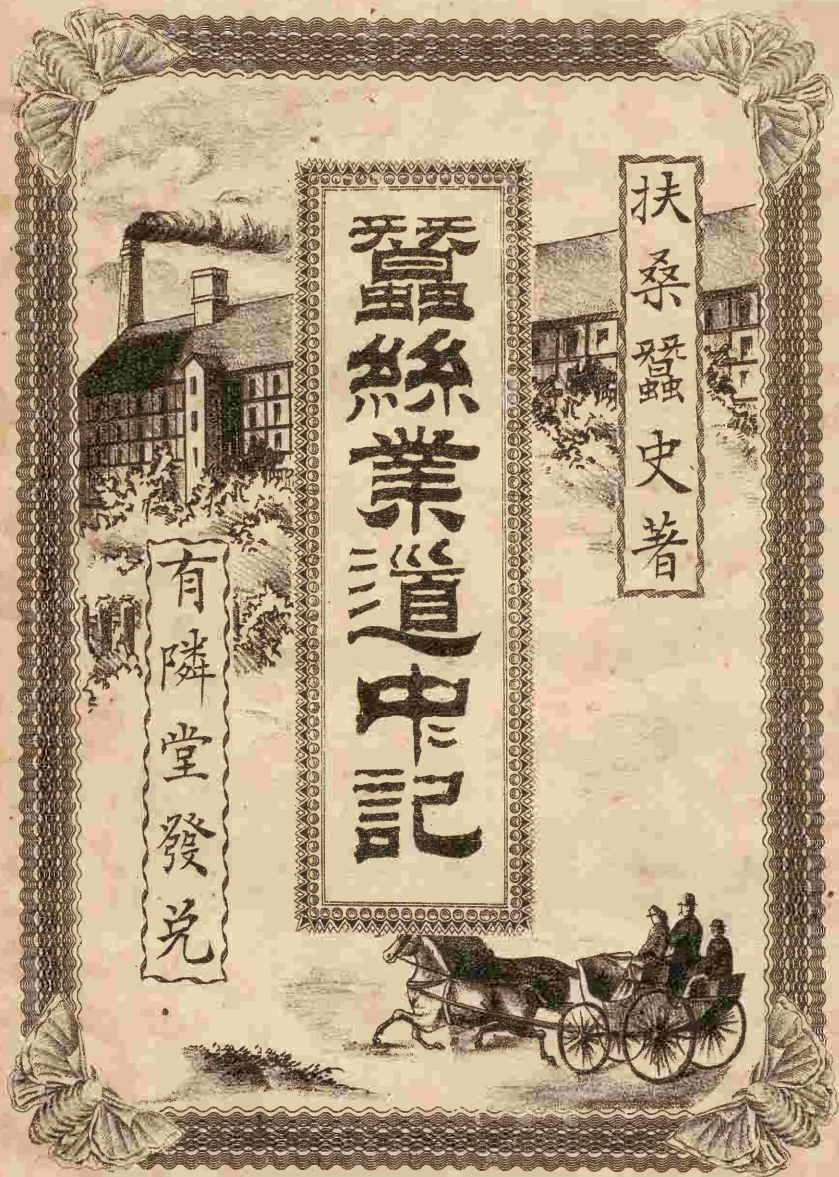 扶桑蠶史著
蠶絲業道中記
有隣堂發兌